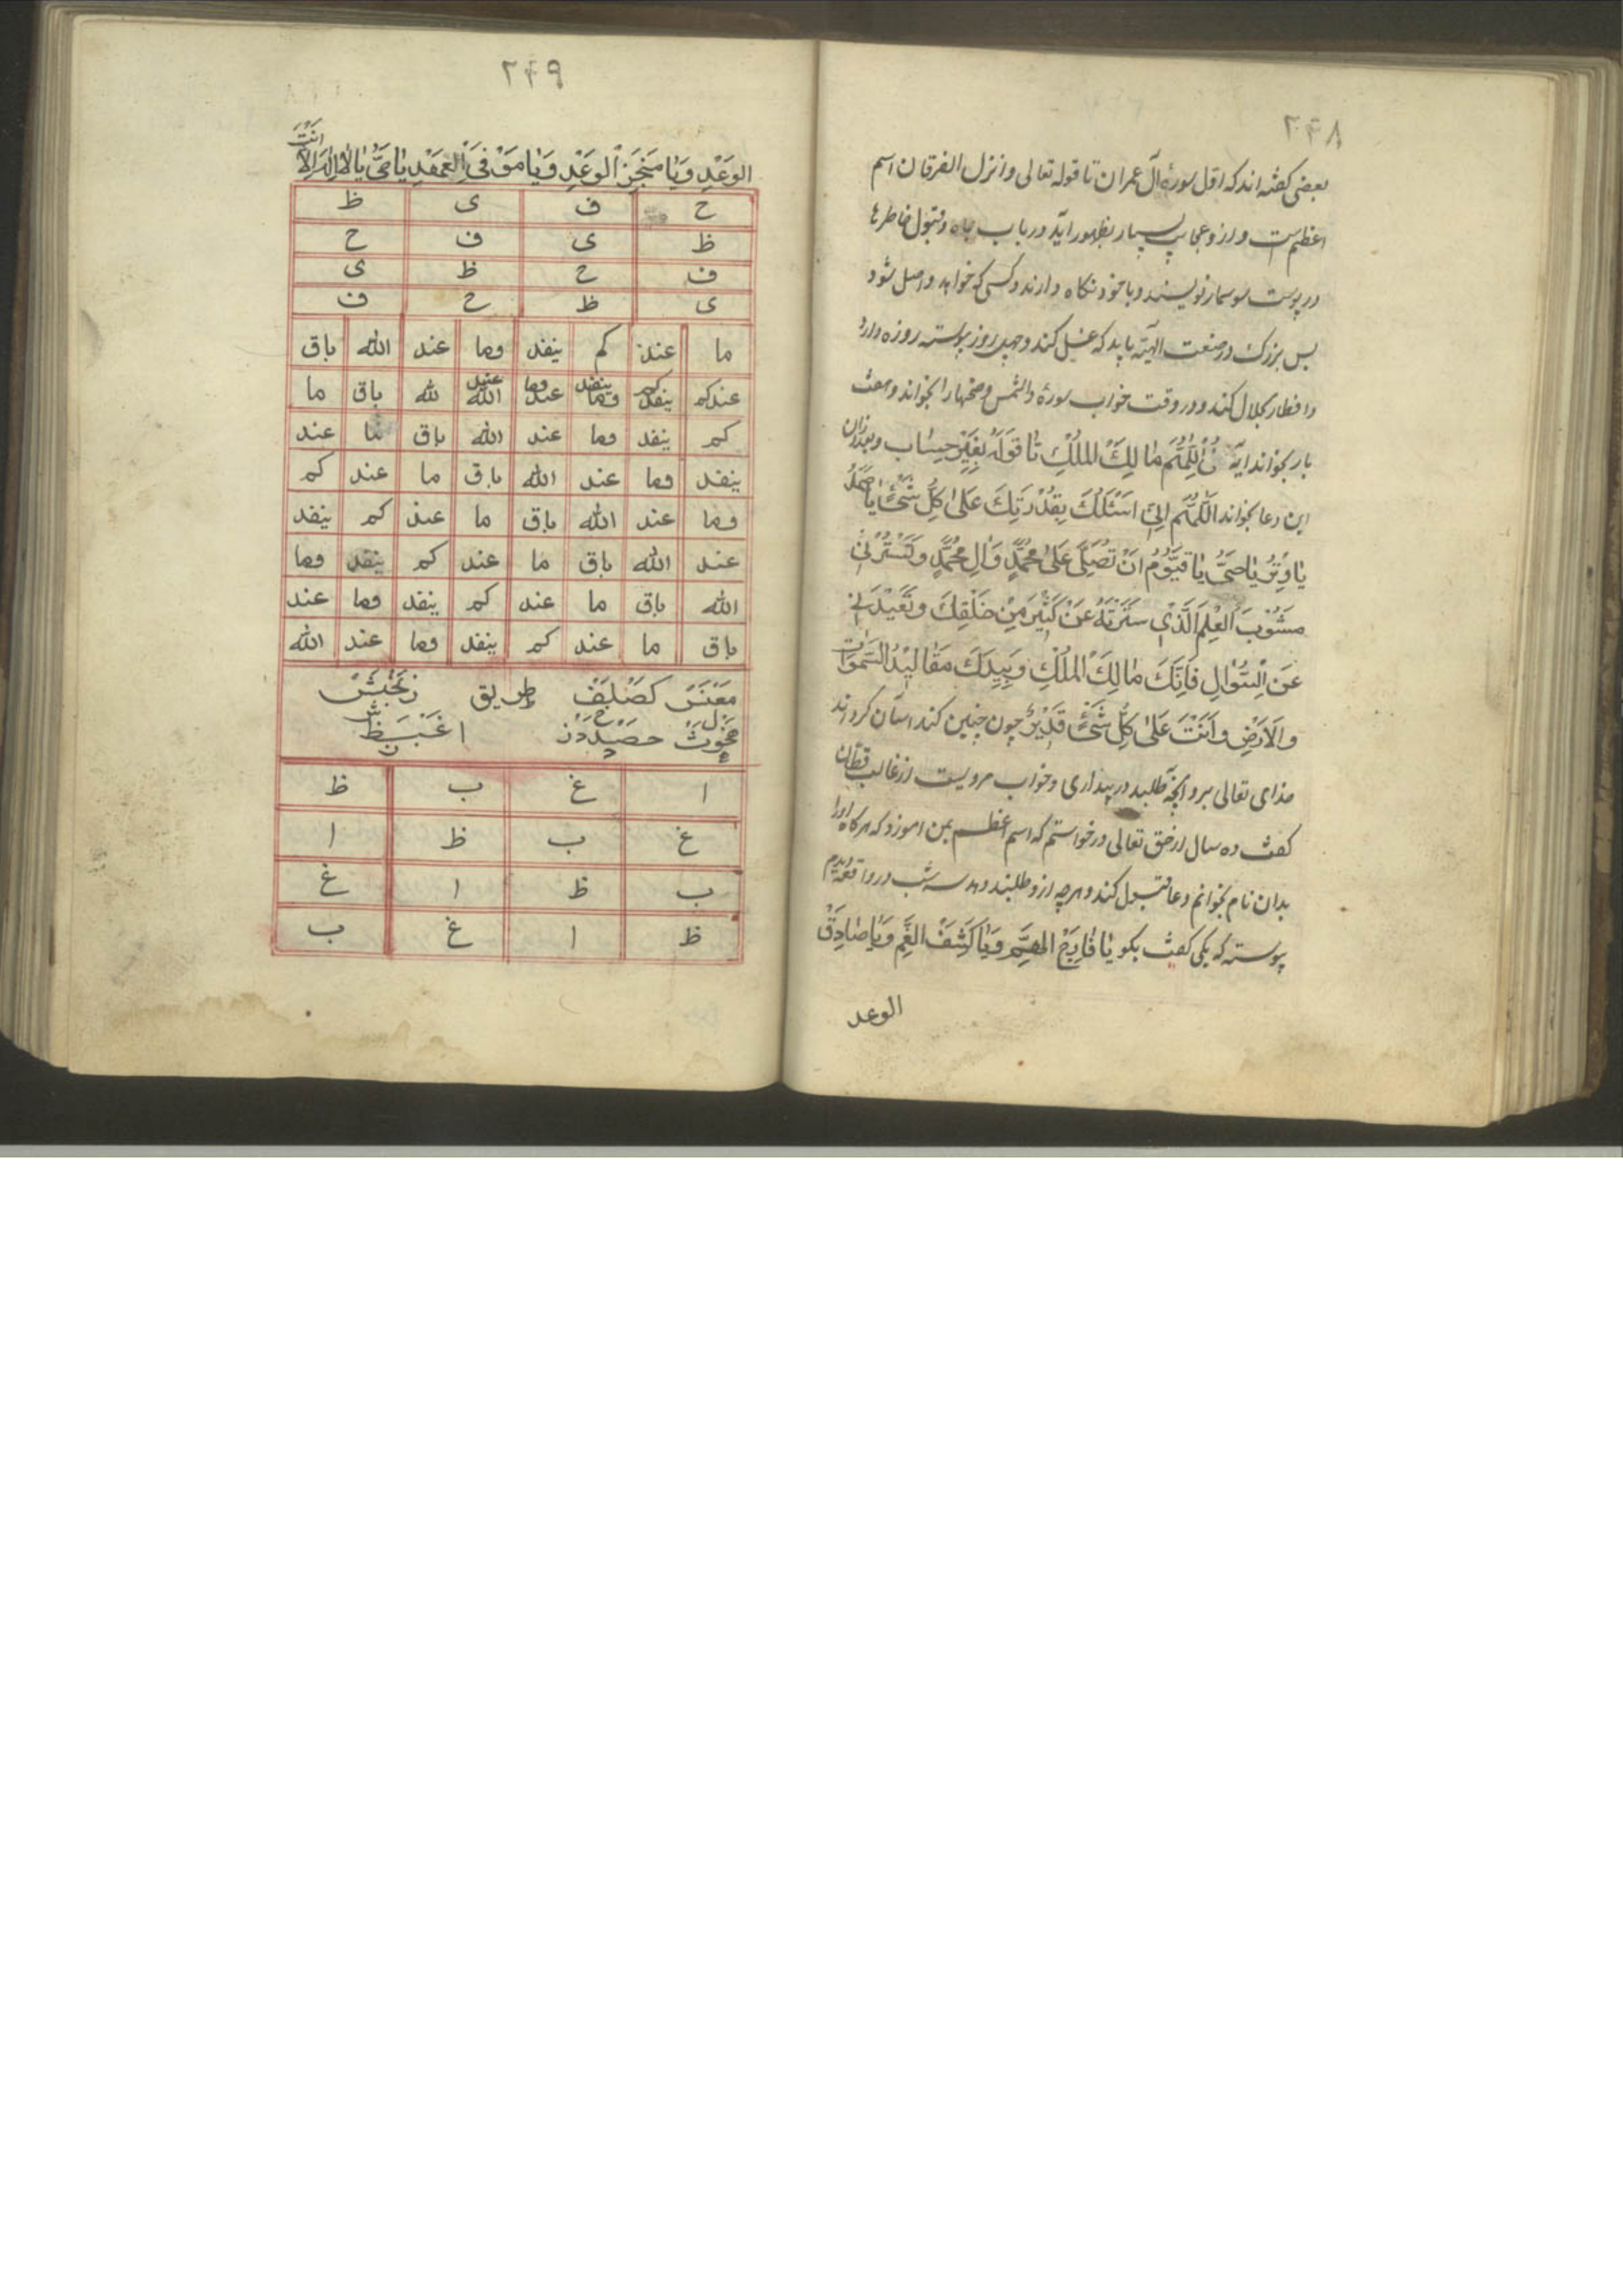 ۲۴۸
بعضی کفته اند که اول سوره آل عمران تا قوله تعالی وانزل الفرقان اسم
اعظم است و ازو عجایب بسیار بظهور آید در باب جاه و قبول خاطرها
در پوست سوسمار نویسند و با خود نکاه دارند و کسی که خواهد واصل شود
بس بزرک در صنعت الهیه باید که غسل کند و چهل روز پیوسته روزه دارد
و افطار بحلال کند و در وقت خواب سوره والشمس وضحیها را بخواند و هفت
بار بخواند آیه قُلِ اللَّهُمَّ مَالِكَ المُلْكِ تا قَولَهُ بِغَيْرِ حِسَابٍ و بعد از آن
این دعا بخواند اَللَّهُمَّ اِنِّي اَسْئَلُكَ بِقُدْرَتِكَ عَلَى كُلِّ شَيْءٍ يَا صَمَدُ
يَا وِتْرُ يَا حَيُّ يَا قَيُّومُ اَنْ تُصَلِّيَ عَلَى مُحَمَّدٍ وَآلِ مُحَمَّدٍ
العِلْمِ الَّذِي سَتَرْتَهُ عَنْ كَثِيرٍ مِنْ خَلْقِكَ
عَنِ السُّوَالِ فَاِنَّكَ مَالِكُ المُلْكِ وَبِيَدِكَ مَقَالِيدُ السَّمَوَاتِ
وَالاَرْضِ وَاَنْتَ عَلَى كُلِّ شَيْءٍ قَدِيرٌ چون چنین کند آسان کرداند
خدای تعالی برو آنچه طلبد در بیداری و خواب مرویست از غالب قطان
کفت ده سال از حق تعالی درخواستم که اسم اعظم بمن آموزد که هرکاه اورا
بدان نام بخوانم دعا قبول کند و هرچه ازو طلبند دهد سه شب در واقعه دیدم
پیوسته که یکی کفت بکو يَا فَارِجَ الهَمِّ وَيَا كَاشِفَ الغَمِّ وَيَا صَادِقَ
الوعد
۲۴۹
الوَعْدِ وَيَا مُنْجِزَ الوَعْدِ وَيَا مُوفِيَ العَهْدِ يَا حَيُّ يَا لَا اِلَهَ اِلَّا اَنْتَ
ح ف ی ظ
ظ ی ف ح
ف ح ظ ی
ی ظ ح ف
ما عند کم ینفد وما عند الله باق
عندکم ینفد وما عند الله لله باق ما
کم ینفد وما عند الله باق ما عند
ینفد وما عند الله باق ما عند کم
وما عند الله باق ما عند کم ینفد
عند الله باق ما عند کم ینفد وما
الله باق ما عند کم ینفد وما عند
باق ما عند کم ینفد وما عند الله
طریق
ا غ ب ظ
غ ب ظ ا
ب ظ ا غ
ظ ا غ ب